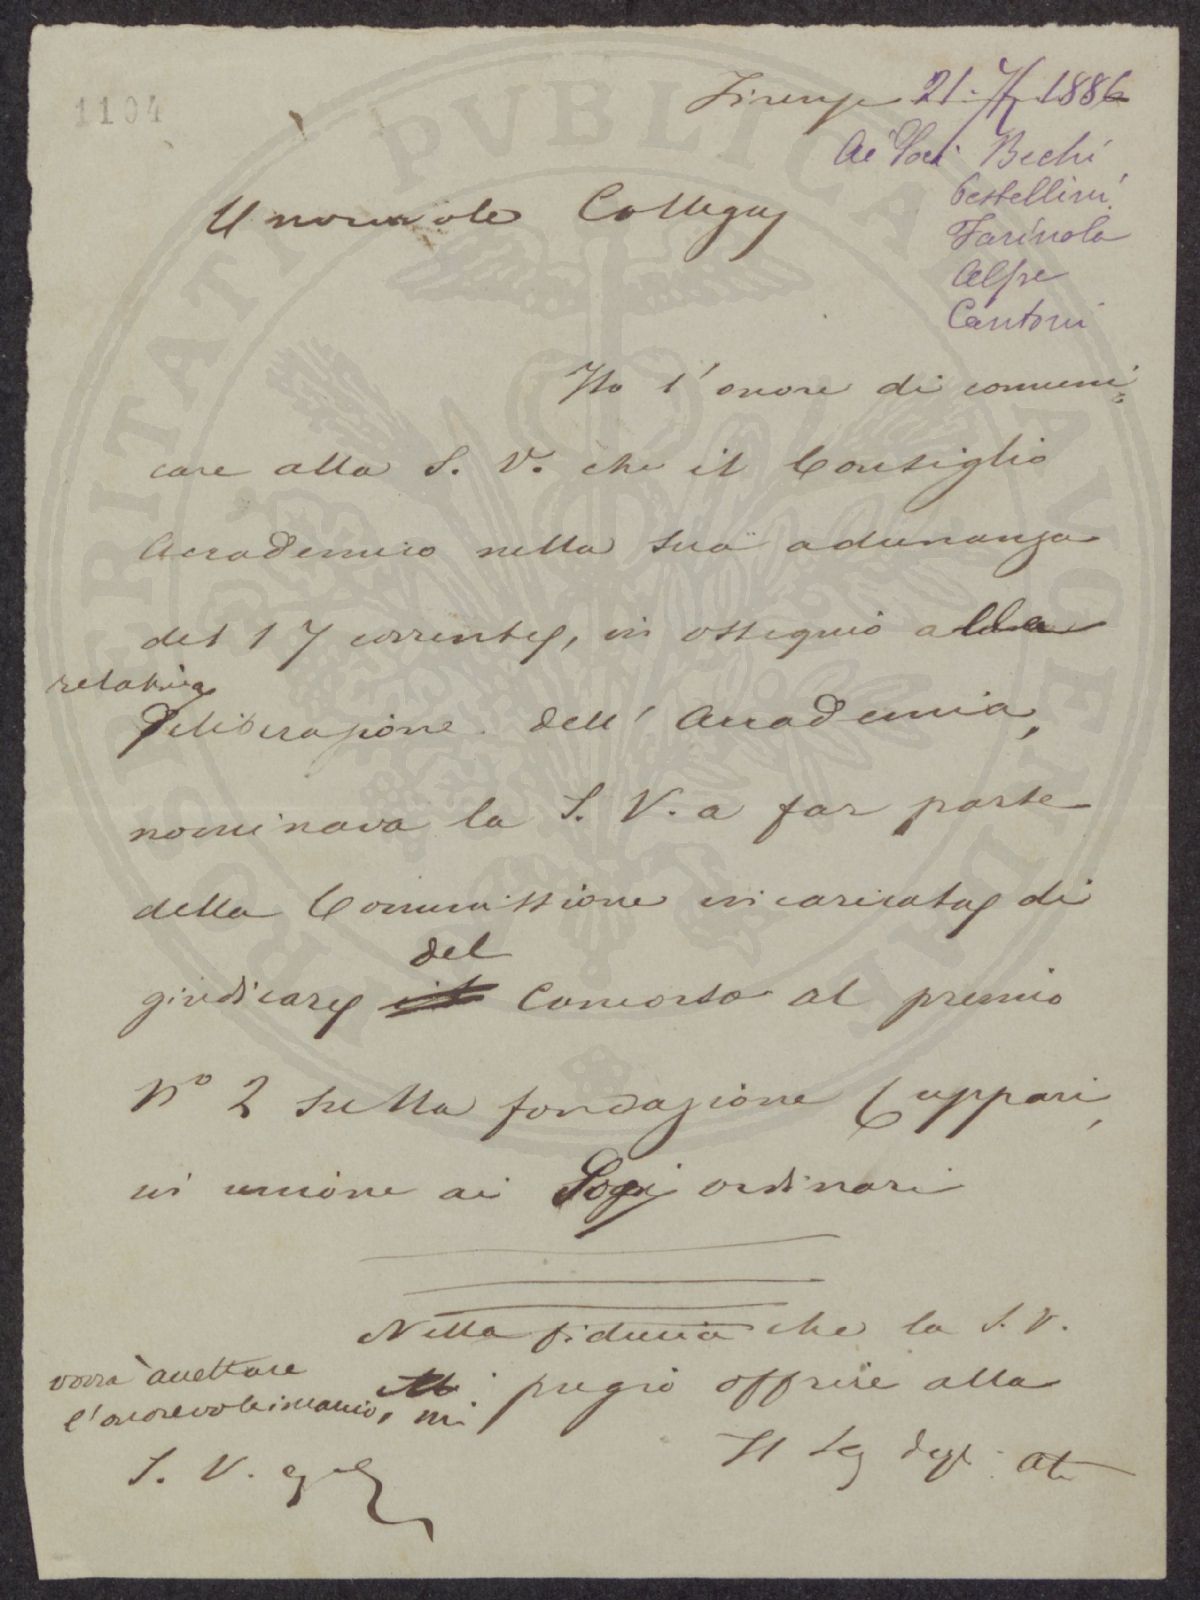 1104
Firenze 21. 7/ 1886
Ai Soci Bechi
Cestellini
Farinola
Alpe
Cantoni
Onorevole Collega
Ho l'onore di comuni=
care alla S. V. che il Consiglio
Accademico nella sua adunanza
del 17 corrente, in ossequio alla
relativa
deliberazione dell'Accademia,
nominava la S. V. a far parte
della Commissione incaricata di
del
giudicare il Concorso al premio
No 2 sulla fondazione Cuppari,
in unione ai Soci ordinari
Nella fiducia che la S. V.
vorrà accettare
l'onorevole incarico, mi pregio offrire alla
S. V.
Il Seg degli Atti
PROSPERITATI PVBLICAE AVGENDAE